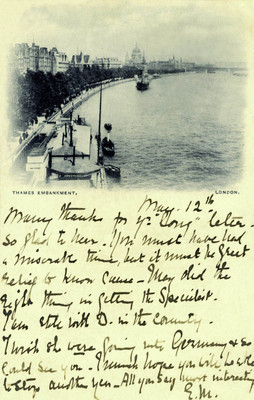 THAMES EMBANKMENT,
LONDON.
May. 12th
Many thanks for yr long letter.
So glad to hear. You must have had
a miserable time, but it must be great
relief to know cause - They did the
right thing in getting the Specialist.
I am still with D. in the country.
I wish she were going into Germany & so
could see you. I much hope you will be able
to stop another year - All you say most interesting
E.M.